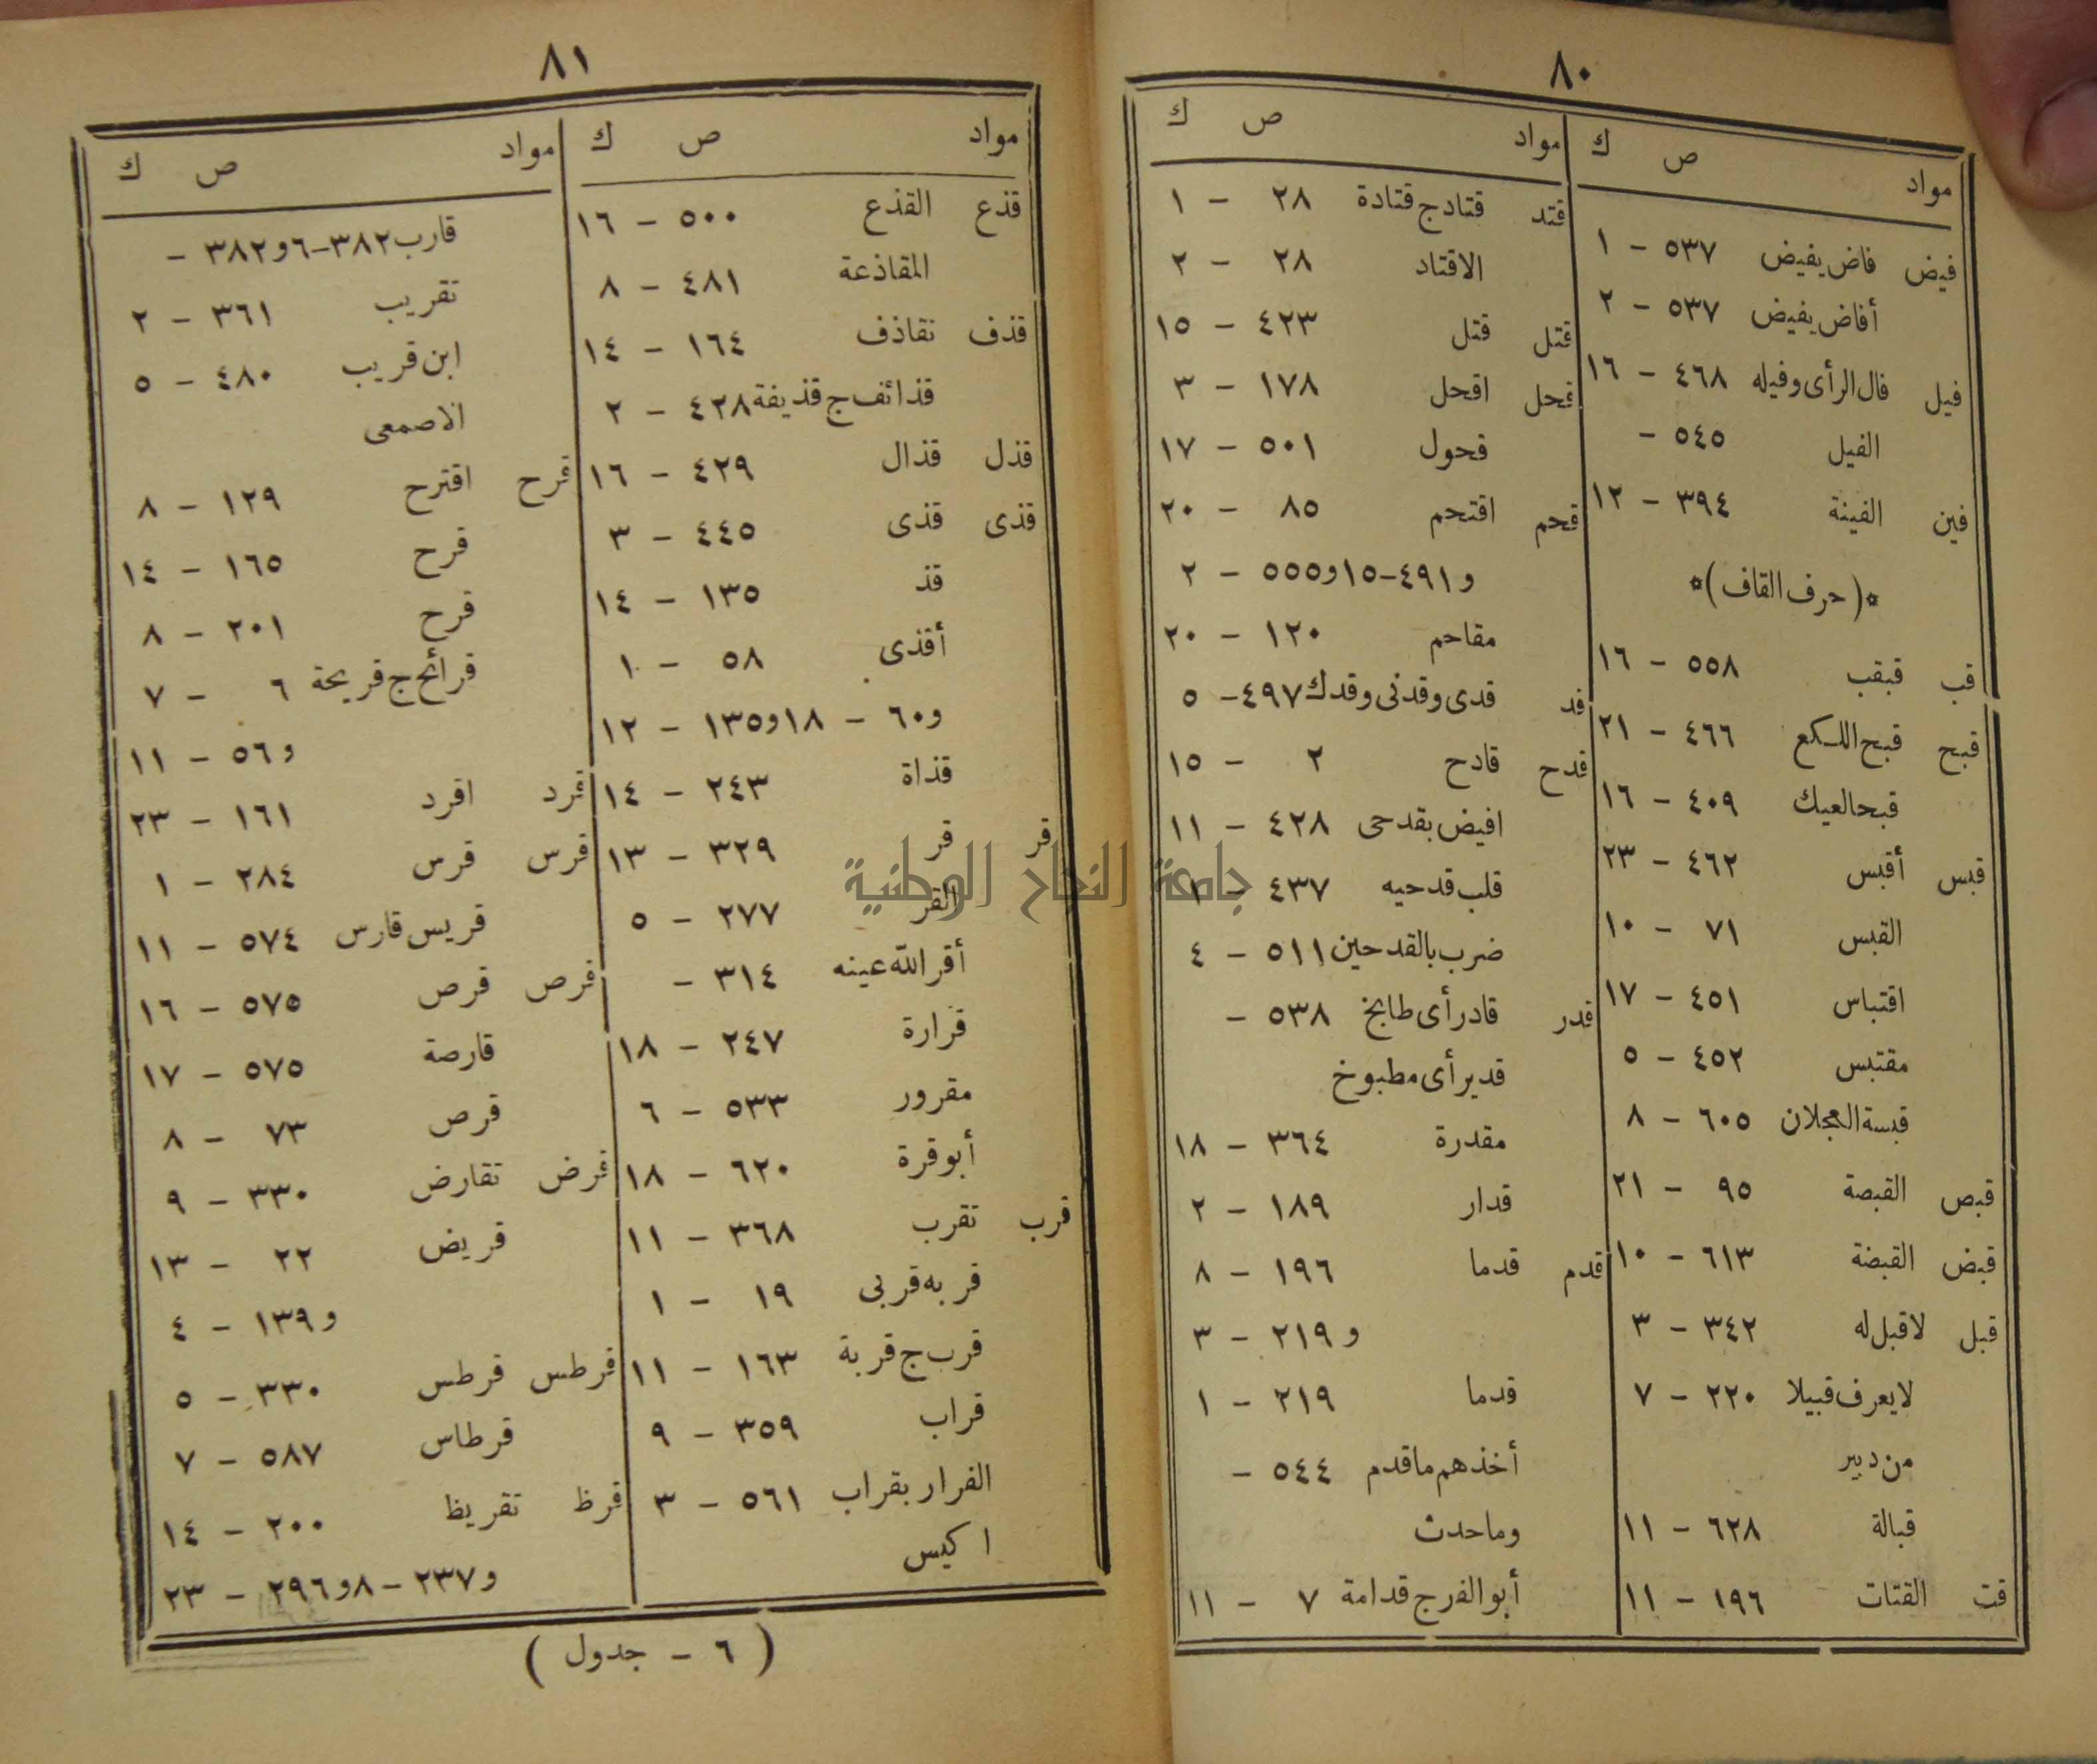 ٨٠
مواد ص ك
فيض فاض يفيض ٥٣٧ - ١
أفاض يفيض ٥٣٧ - ٢
فيل فال الرأى وفيله ٤٦٨ - ١٦
الفيل ٥٤٥ -
فين الفينة ٣٩٤ - ١٢
*(حرف القاف)*
قب قبقب ٥٥٨ - ١٦
قبح قبح اللكع ٤٦٦ - ٢١
قبحا لعيك ٤٠٩ - ١٦
قبس أقبس ٤٦٢ - ٢٣
القبس ٧١ - ١٠
اقتباس ٤٥١ - ١٧
مقتبس ٤٥٢ - ٥
قبسة العجلان ٦٠٥ - ٨
قبص القبصة ٩٥ - ٢١
قبض القبضة ٦١٣ - ١٠
قبل لا قبل له ٣٤٢ - ٣
لا يعرف قبيلا ٢٢٠ - ٧
من دبير
قبالة ٦٢٨ - ١١
قت القتات ١٩٦ - ١١
مواد ص ك
قتد قتاد ج قتادة ٢٨ - ١
الاقتاد ٢٨ - ٢
قتل قتل ٤٢٣ - ١٥
قحل اقحل ١٧٨ - ٣
قحول ٥٠١ - ١٧
قحم اقتحم ٨٥ - ٢٠
و٤٩١-١٥و٥٥٥ - ٢
مقاحم ١٢٠ - ٢٠
قد قدى وقدنى وقدك ٤٩٧ - ٥
قدح قادح ٢ - ١٥
افيض بقدحى ٤٢٨ - ١١
قلب قدحيه ٤٣٧ - ١
ضرب بالقدحين ٥١١ - ٤
قدر قادر أى طابخ ٥٣٨ -
قدير أى مطبوخ
مقدرة ٣٦٤ - ١٨
قدار ١٨٩ - ٢
قدم قدما ١٩٦ - ٨
و٢١٩ - ٣
قدما ٢١٩ - ١
أخذهم ما قدم ٥٤٤ -
وما حدث
أبو الفرج قدامة ٧ - ١١
٨١
مواد ص ك
قذع القذع ٥٠٠ - ١٦
المقاذعة ٤٨١ - ٨
قذف تقاذف ١٦٤ - ١٤
قذائف ج قذيفة ٤٢٨ - ٢
قذل قذال ٤٢٩ - ١٦
قذى قذى ٤٤٥ - ٣
قذ ١٣٥ - ١٤
أقذى ٥٨ - ١
و٦٠ - ١٨و١٣٥ - ١٢
قذاة ٢٤٣ - ١٤
قر قر ٣٢٩ - ١٣
القر ٢٧٧ - ٥
أقر الله عينه ٣١٤ -
قرارة ٢٤٧ - ١٨
مقرور ٥٣٣ - ٦
أبو قرة ٦٢٠ - ١٨
قرب تقرب ٣٦٨ - ١١
قربه قربى ١٩ - ١
قرب ج قربة ١٦٣ - ١١
قراب ٣٥٩ - ٩
الفرار بقراب ٥٦١ - ٣
اكيس
مواد ص ك
قارب ٣٨٢-٦و٣٨٢ -
تقريب ٣٦١ - ٢
ابن قريب ٤٨٠ - ٥
الاصمعى
قرح اقترح ١٢٩ - ٨
قرح ١٦٥ - ١٤
قرح ٢٠١ - ٨
قرائح ج قريحة ٦ - ٧
و٥٦ - ١١
قرد اقرد ١٦١ - ٢٣
قرس قرس ٢٨٤ - ١
قريس قارس ٥٧٤ - ١١
قرص قرص ٥٧٥ - ١٦
قارصة ٥٧٥ - ١٧
قرص ٧٣ - ٨
قرض تقارض ٣٣٠ - ٩
قريض ٢٢ - ١٣
و١٣٩ - ٤
قرطس قرطس ٣٣٠ - ٥
قرطاس ٥٨٧ - ٧
قرظ تقريظ ٢٠٠ - ١٤
و٢٣٧ - ٨و٢٩٦ - ٢٣
( ٦ - جدول )
جامعة النجاح الوطنية